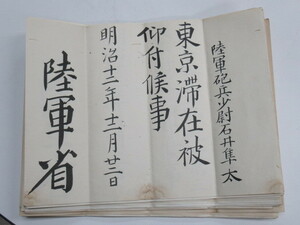 陸軍砲兵少尉石丹隼太
東京滞在被
仰付候事
明治十二年十二月廿二日
陸軍省